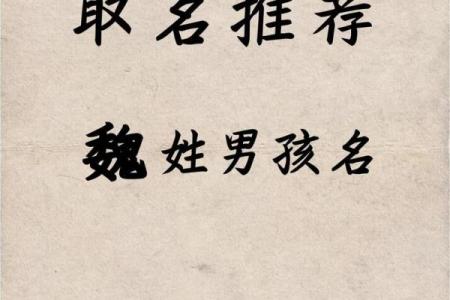 取名推荐
魏姓男孩名